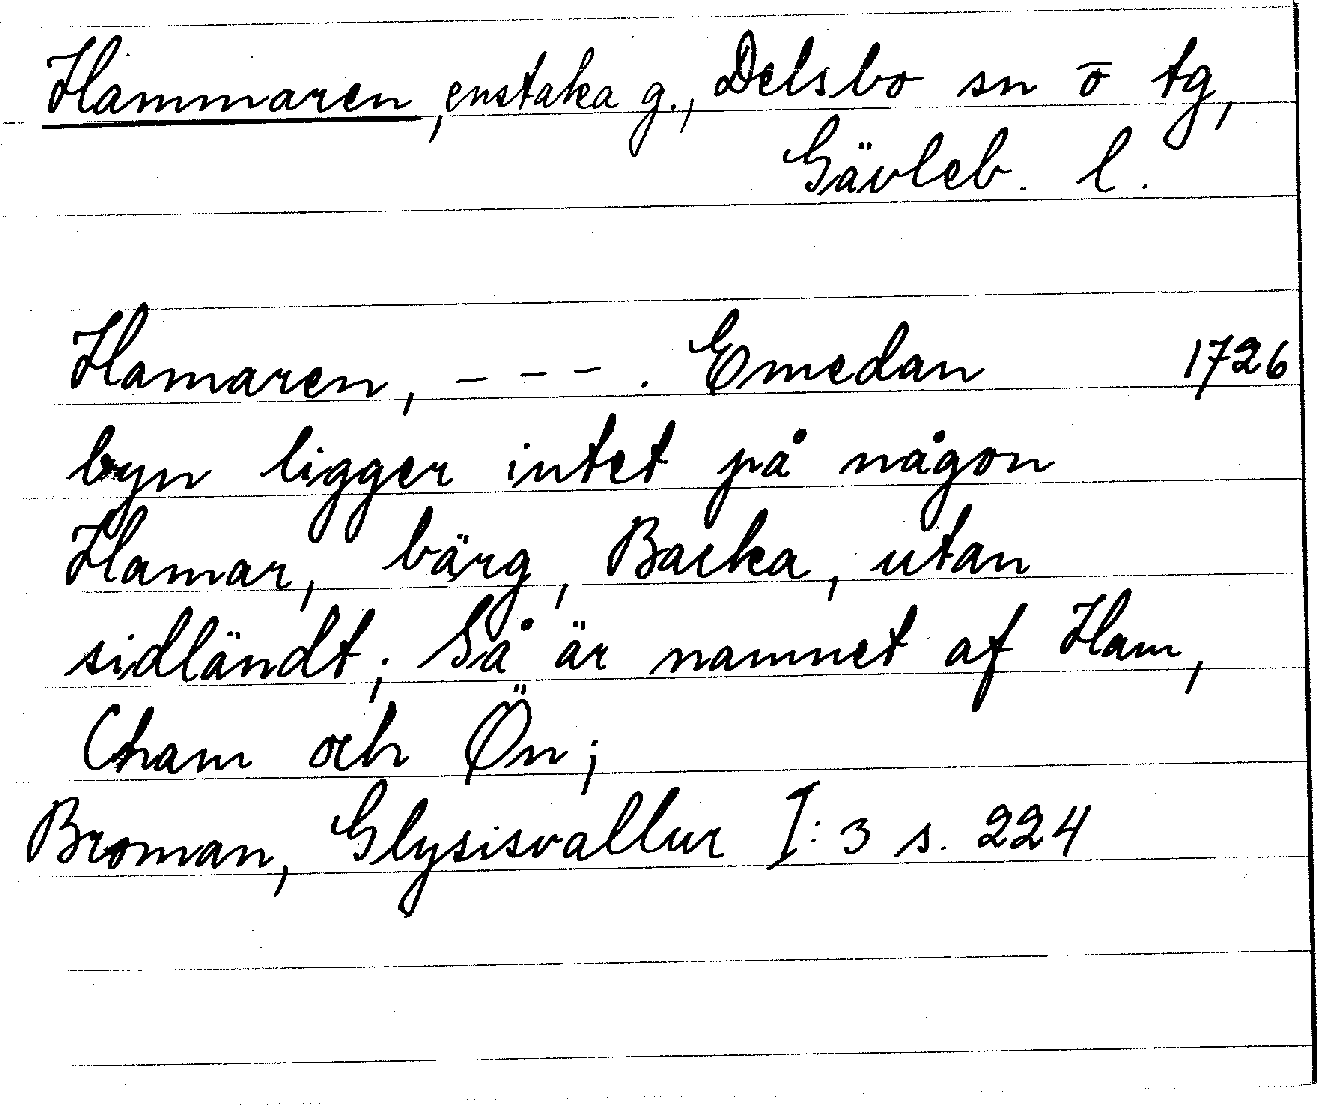 Hammaren, enstaka g., Delsbo sn ō tg,
Gävleb. l.
Hamaren, - - - . Emedan 1726
byn ligger intet på någon
Hamar, bärg, Backa, utan
sidländt; Så är namnet af Ham,
Cham och Ön;
Broman, Glysisvallur I:3 s. 224